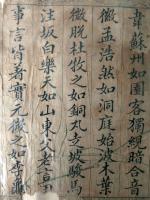 韋蘇州如園客獨繭暗合音
徽孟浩然如洞庭始波木葉
微脫杜牧之如銅丸走坡駿馬
注坂白樂天如山東父老
事言皆著實元微之如李龜